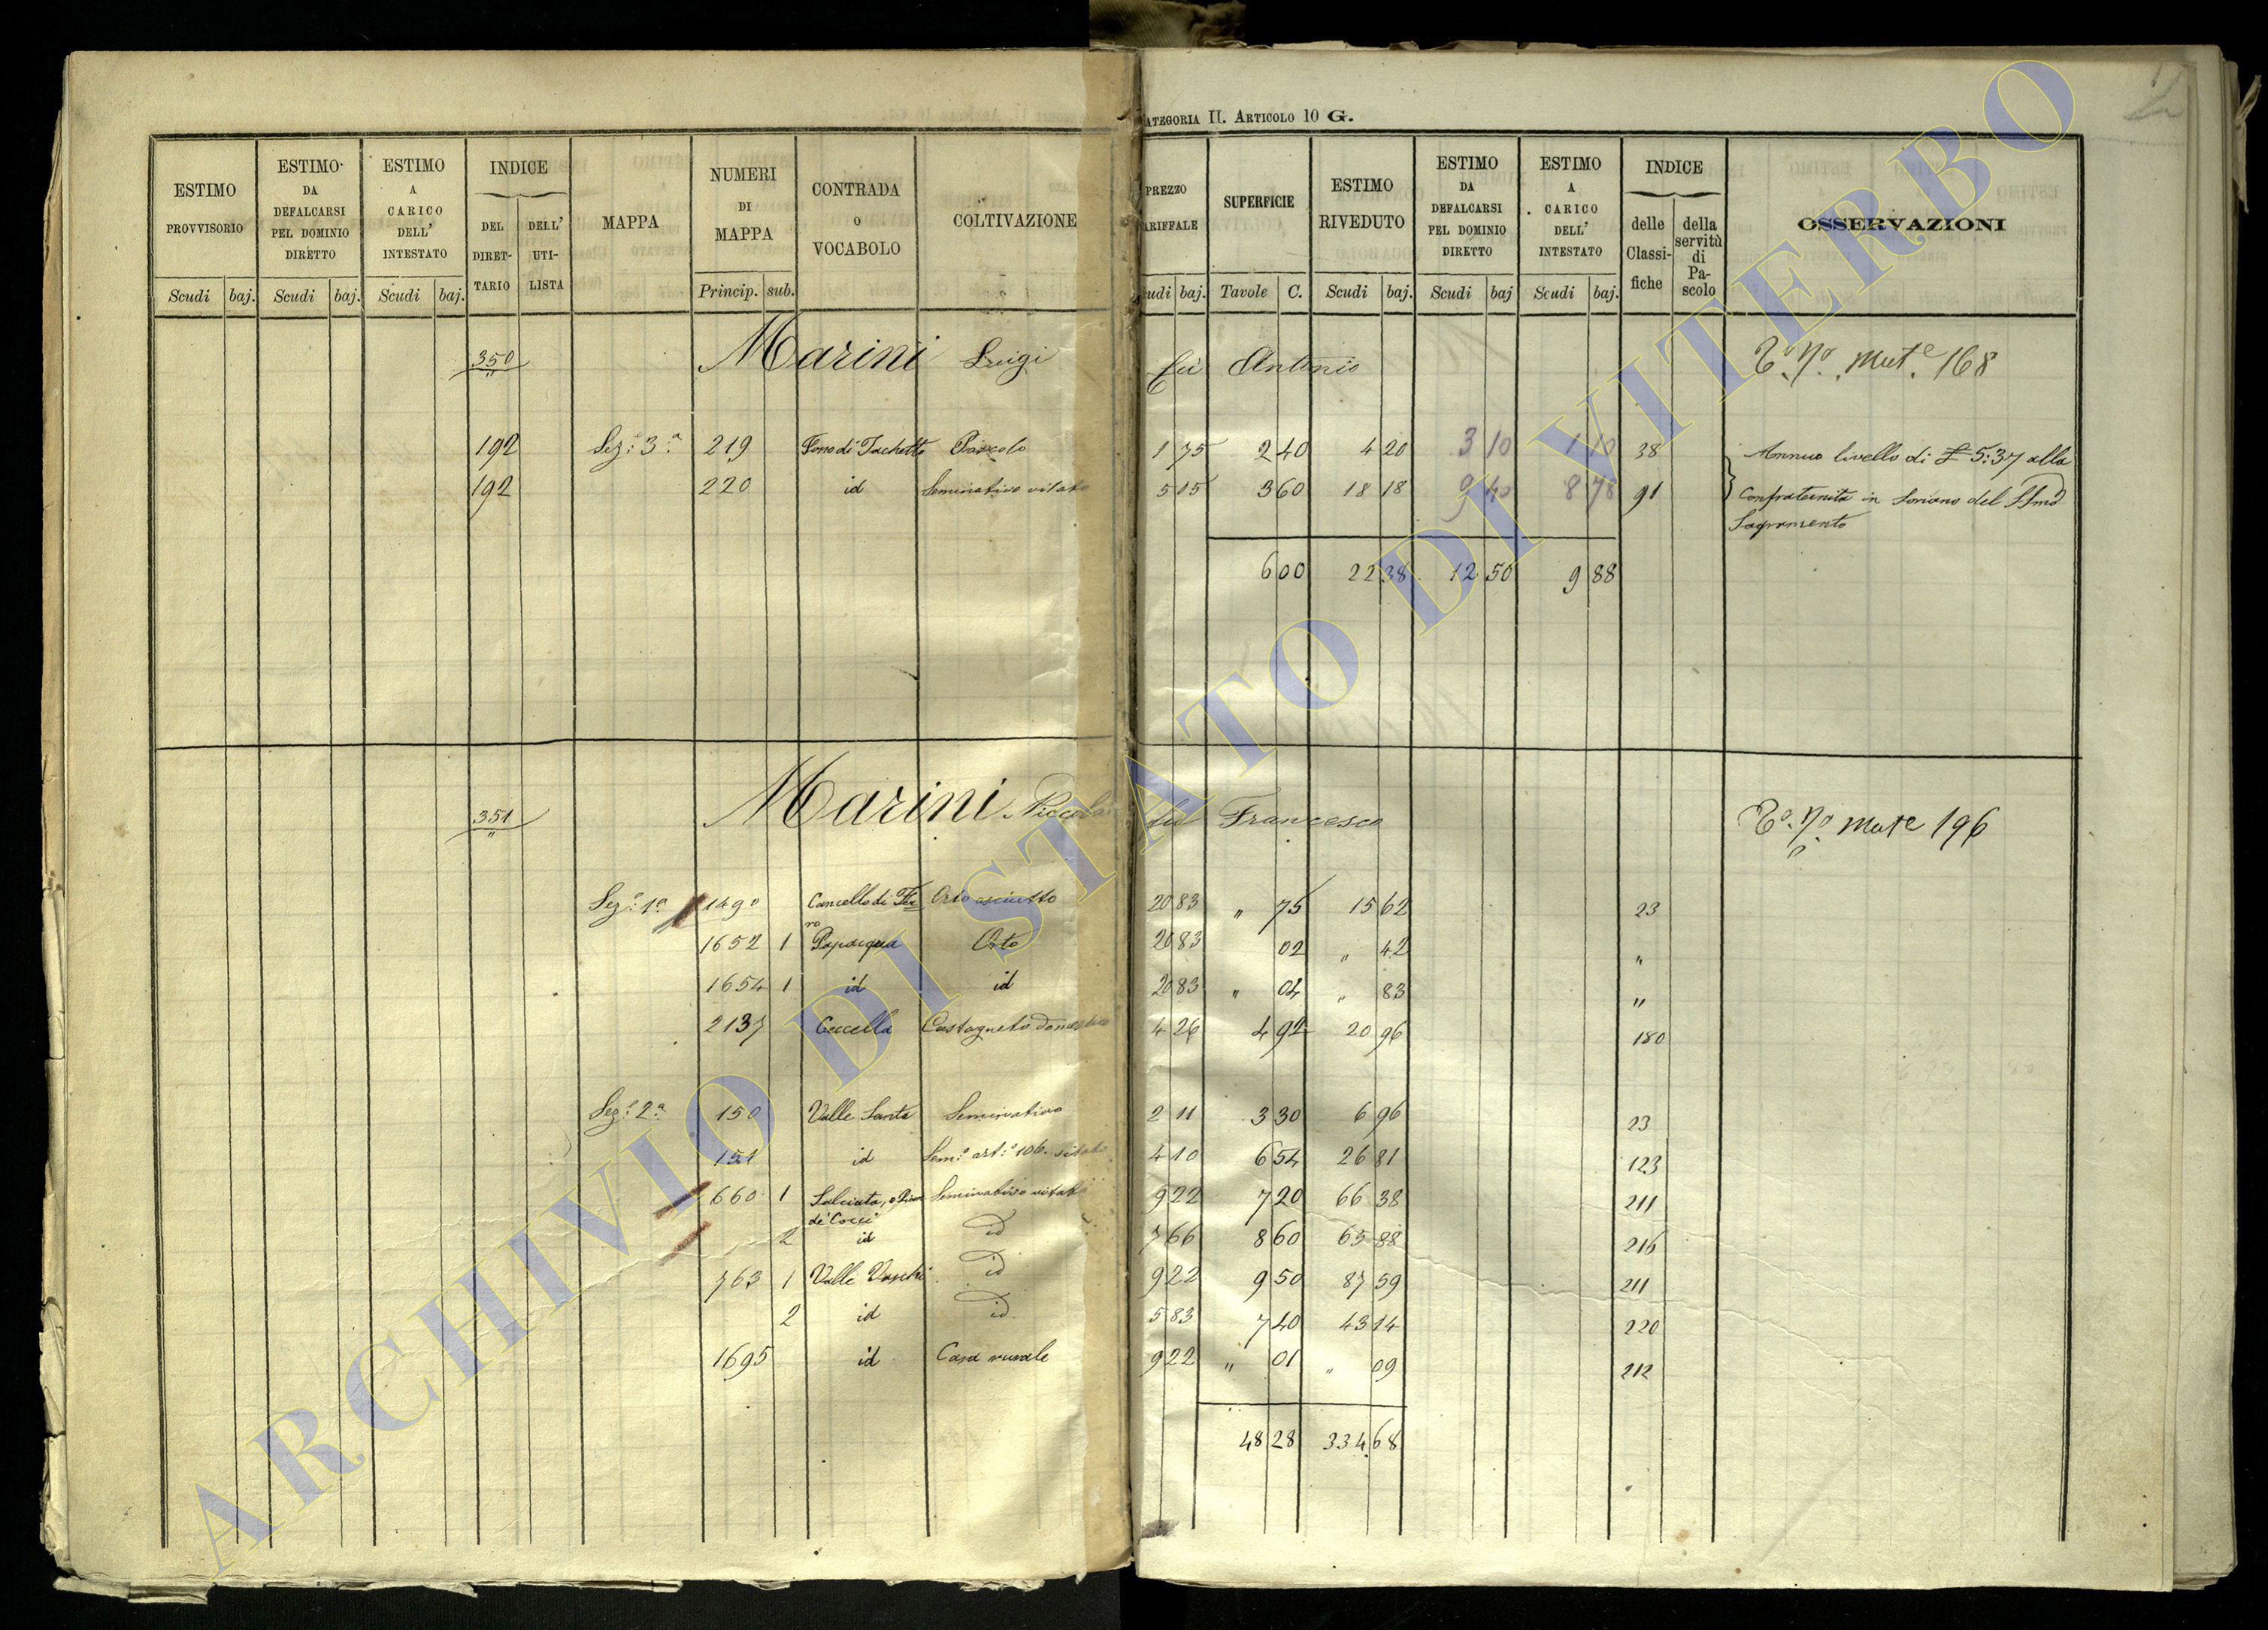 ATEGORIA II. ARTICOLO 10 G.
ESTIMO PROVVISORIO
ESTIMO DA DEFALCARSI PEL DOMINIO DIRETTO
ESTIMO A CARICO DELL' INTESTATO
INDICE
DEL DIRET-TARIO
DELL' UTI-LISTA
MAPPA
NUMERI DI MAPPA
CONTRADA o VOCABOLO
COLTIVAZIONE
PREZZO ARIFFALE
SUPERFICIE
ESTIMO RIVEDUTO
ESTIMO DA DEFALCARSI PEL DOMINIO DIRETTO
ESTIMO A CARICO DELL' INTESTATO
INDICE
delle Classi-fiche
della servitù di Pa-scolo
OSSERVAZIONI
Scudi baj. Scudi baj. Scudi baj. Princip. sub. udi baj. Tavole C. Scudi baj. Scudi baj Scudi baj.
350 Marini Luigi fù Antonio
192 Sez.e 3a 219 Fono di Tachetto Pascolo 1 75 2 40 4 20 3 10 1 10 38 Annuo livello di £ 5:37 alla
192 220 id Seminativo vitato 5 05 3 60 18 18 9 40 8 78 91 Confraternita in Soriano del SSmo
Sagramento
6 00 22 38 12 50 9 88
351 Marini Niccola fu Francesco
Sez.e 1a 1490 Cancello di Orto asciutto 20 83 " 75 15 62 23
1652 1 Papacqua Orto 20 83 02 " 42 "
1654 1 id id 20 83 " 04 " 83 "
2137 Ceccella Castagneto domestico 4 26 4 92 20 96 180
Sez.e 2a 150 Valle Santa Seminativo 2 11 3 30 6 96 23
151 id Sem.o art.o 106. vitato 4 10 6 54 26 81 123
660 1 Salciata, o Seminativo vitato 9 22 7 20 66 38 211
de' Cocci
2 id id 7 66 8 60 65 88 216
763 1 Valle id 9 22 9 50 87 59 211
2 id id 5 83 7 40 43 14 220
1695 id Casa rurale 9 22 " 01 " 09 212
48 28 334 68
ARCHIVIO DI STATO DI VITERBO